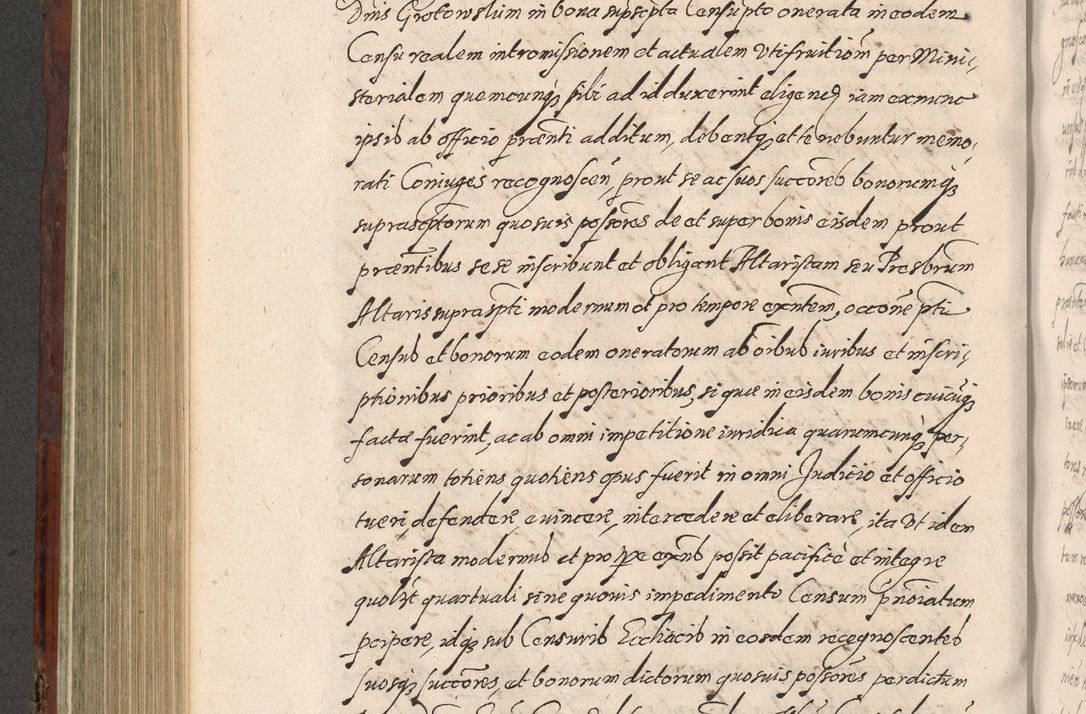 Dnis Grotowskim in bona supscpta Censu pto onerata in eodem
Censu realem intromissionem et actualem Vtifruitiom per Mini,
sterialem quemcunq sibi ad id duxerint eligenq iam ex nunc
ipsib ab officio prænti additum, debentq et tenebuntur memo,
rati Coniuges recognoscen, prout se ac suos succoreb bonorumq
suprascptorum quosuis possores de et super bonis eisdem prout
præntibus sese inscribunt et obligant Altaristam seu Presbrum
Altaris suprascpti modernum et pro tempore exntem, occone pti
Censub et bonorum eodem oneratorum ab oibub iuribus et inscri,
ptionibus prioribus et posterioribus, si quæ in eisdem bonis cuicuq
factæ fuerint, ac ab omni impetitione iuridica quarumcunq per,
sonarum totiens quotiens opus fuerit in omni Judicio et officio
tueri, defendere, euincere, intercedere et eliberare, ita Vt idem
Altarista modernub et pro tpe exnb possit pacifice et integre
quolzt quartuali sine quouis impedimento Censum pnoiatum
pcipere, idq sub Censurib Ecclîacib in eosdem recognoscenteb
suosq succores, et bonorum dictorum quosuis possores perdictum